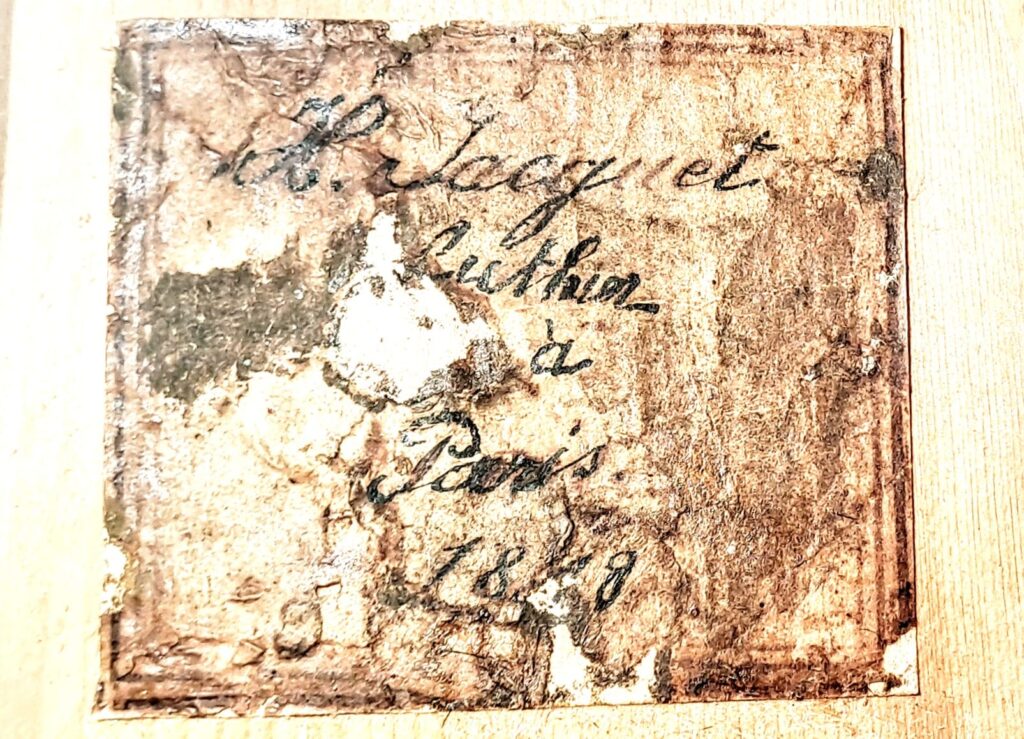 H. Jacquet
Luthier
à
Paris.